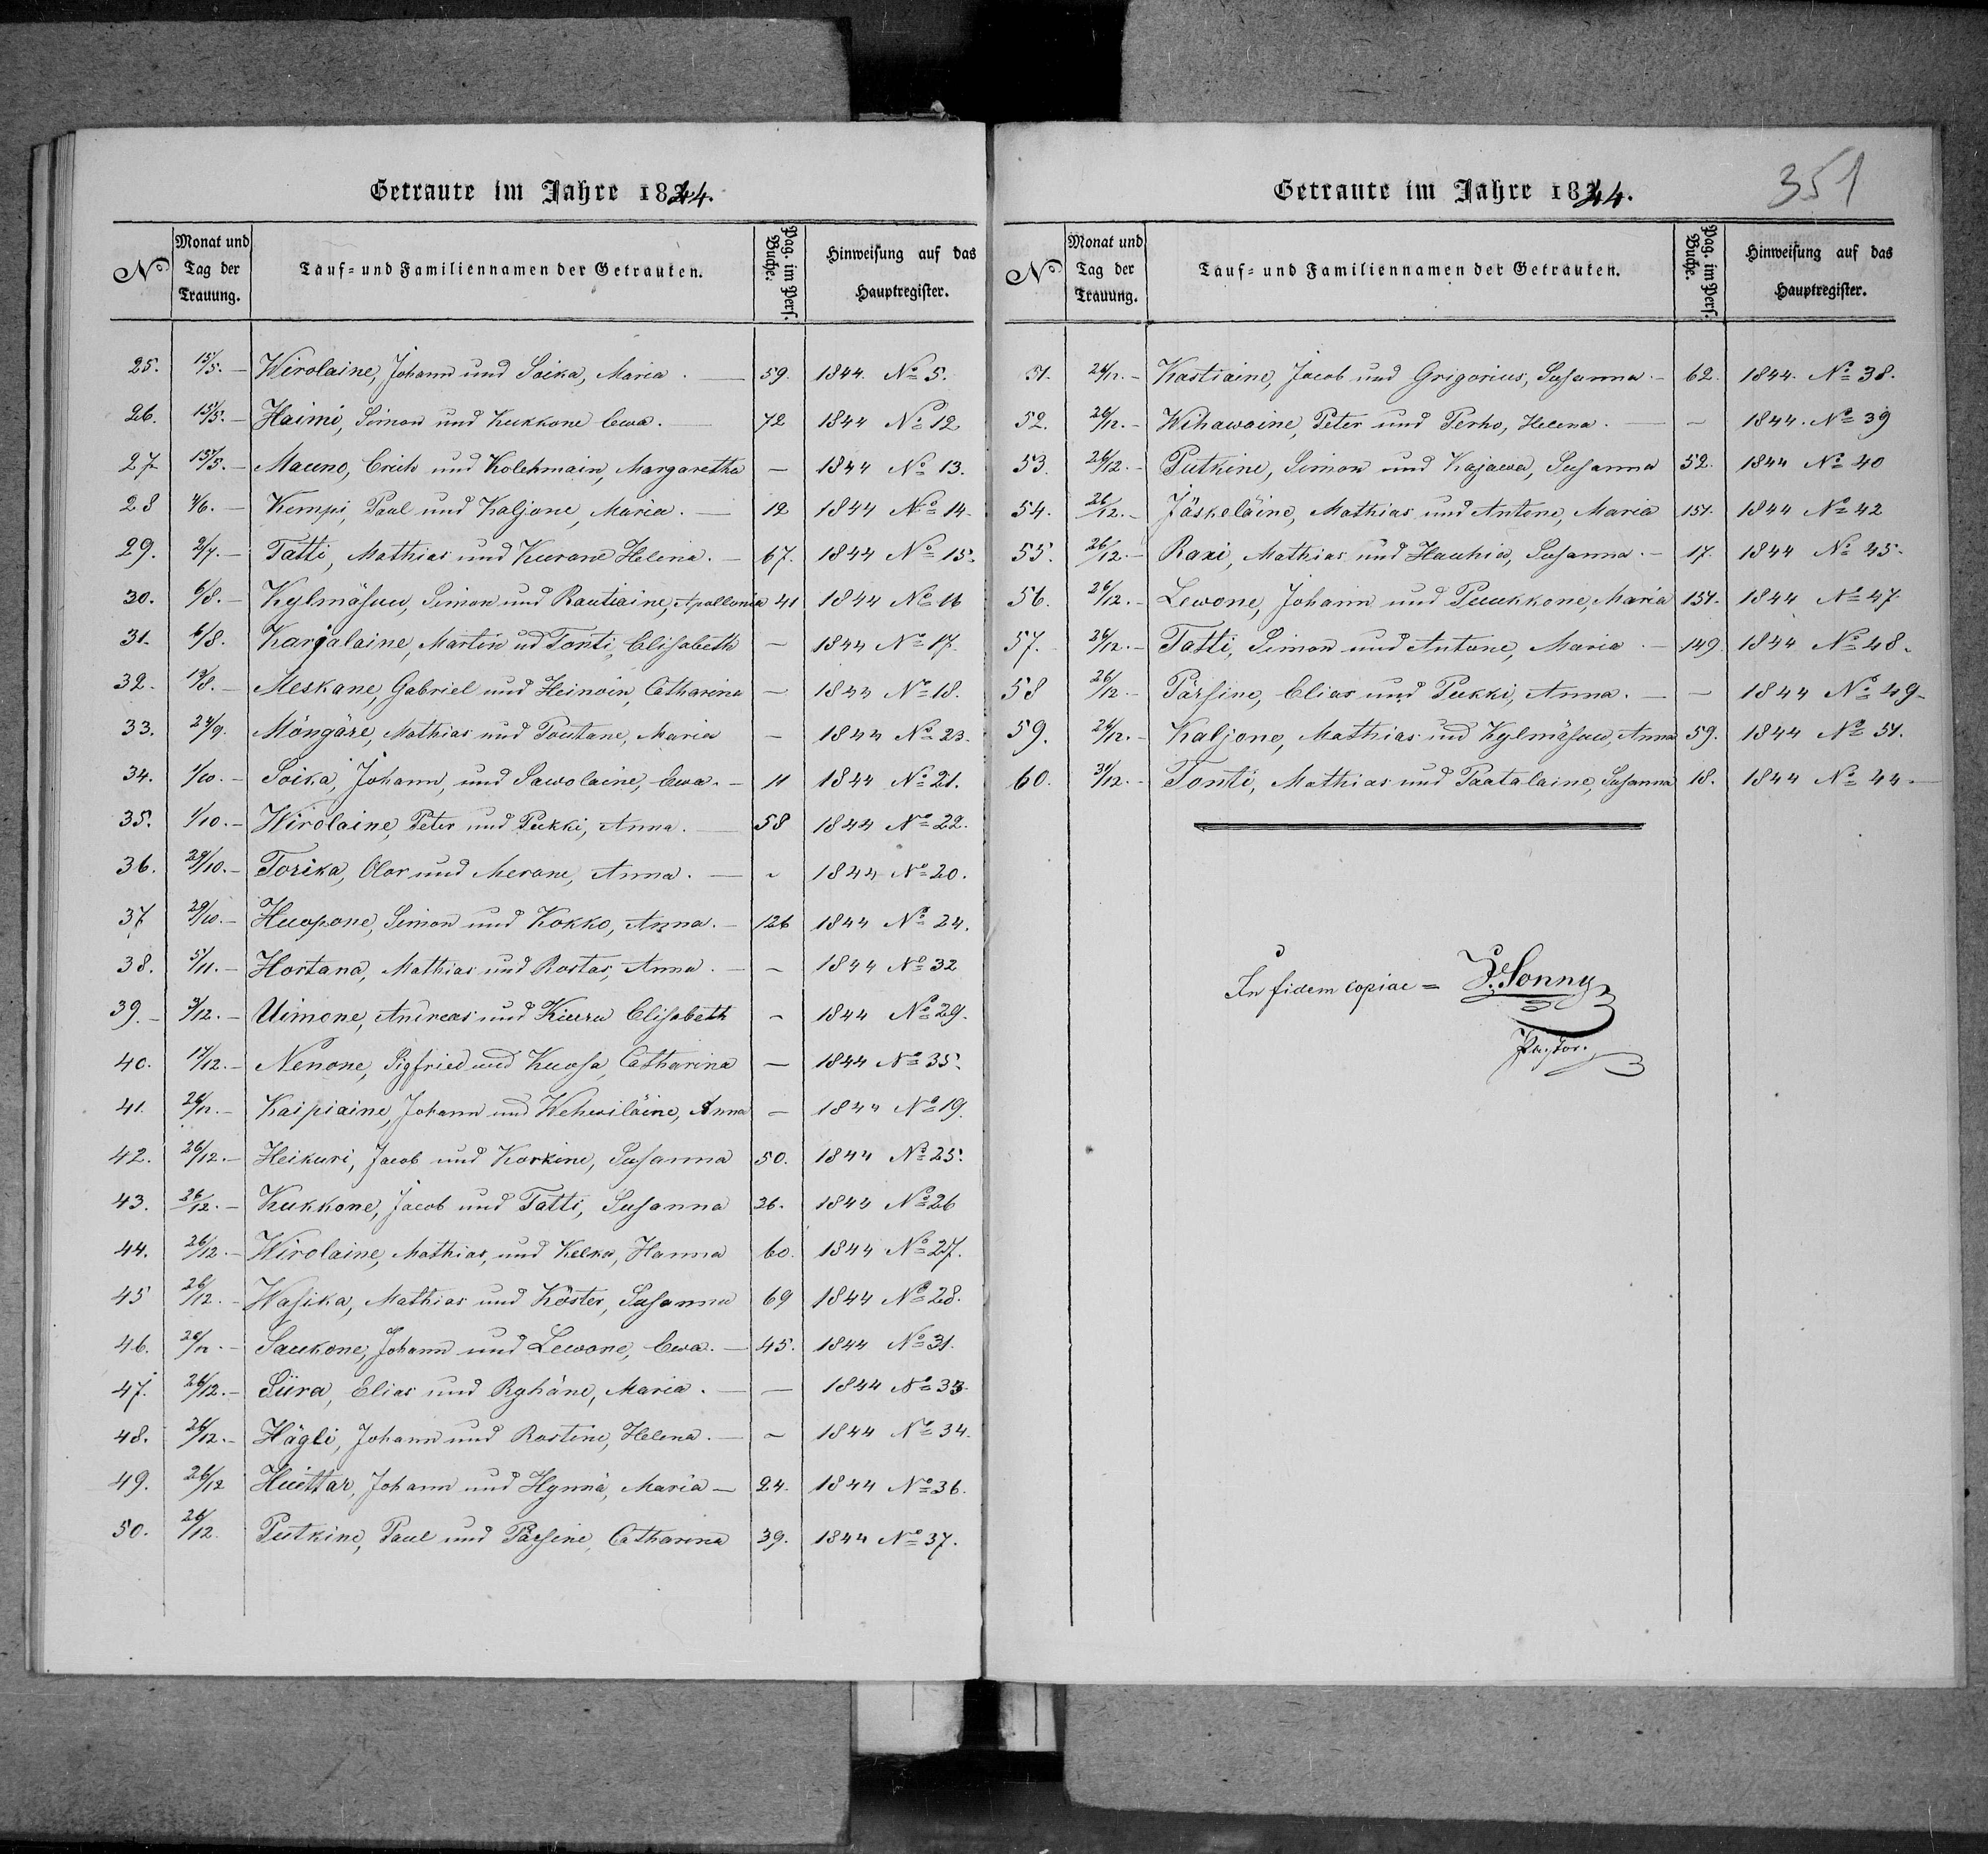 Getraute im Jahre 1844.
No. Monat und Tag der Trauung. Tauf= und Familiennamen der Getrauten. Pag. im Pers. Buche. Hinweisung auf das Hauptregister.
25. 15/5. – Wirolaine, Johann und Soika, Maria. – 59. 1844. No 5.
26. 15/5. – Haimi, Simon und Kukkone Ewa. – 72 1844 No 12
27 15/5. – Mauno, Erich und Kolehmain, Margaretha – 1844 No 13.
28 4/6. – Kempi, Paul und Kaljone, Maria. – 12 1844 No 14.
29. 2/7. – Tatti, Mathias und Kurane Helena. – 67. 1844 No 15.
30. 6/8. – Kylmäsuu, Simon und Rautiaine, Apollonia 41 1844 No 16
31. 6/8. Karjalaine, Martin ud Tonti, Elisabeth – 1844 No 17.
32. 13/8. – Meskane, Gabriel und Heinoin, Catharina – 1844 No 18.
33. 24/9. Möngäre, Mathias und Poutane, Maria – 1844 No 23.
34. 1/10. – Soika, Johann, und Sawolaine, Ewa. – 11 1844 No 21.
35. 1/10. – Wirolaine, Peter und Pukki, Anna. – 58 1844 No 22.
36. 29/10. – Torika, und Merane, Anna. – – 1844 No 20.
37 29/10. – Huopone, Simon und Kokko, Anna. – 126 1844 No 24.
38. 5/11. – Hortana, Mathias und Rostas, Anna. – – 1844 No 32
39. – 3/12. – Uimone, Andreas und Kiuru Elisabeth – 1844 No 29.
40. 17/12. – Nenone, Sigfried und Kuosa, Catharina – 1844 No 35.
41. 26/12. – Kaipiaine, Johann und Wehwiläine, Anna – 1844 No 19.
42. 26/12. – Heikuri, Jacob und Korkine, Susanna 50. 1844 No 25.
43. 26/12. – Kukkone, Jacob und Tatti, Susanna 36. 1844 No 26
44. 26/12. – Wirolaine, Mathias, und Kelka, Hanna 60. 1844 No 27.
45 26/12. – Wasika, Mathias und Köster, Susanna 69 1844 No 28.
46. 26/12. – Saukone, Johann und Lewone, Ewa. – 45. 1844 No 31.
47. 26/12. – Süra, Elias und Ryhäne, Maria. – – 1844 No 33.
48. 26/12. – Hägli, Johann und Rostine, Helena. – – 1844 No 34.
49. 26/12 Huittar, Johann und Hynnä, Maria – 24. 1844 No 36.
50. 26/12. Putkine, Paul und Pärsine, Catharina 39. 1844 No 37.
Getraute im Jahre 1844.
351
No. Monat und Tag der Trauung. Tauf= und Familiennamen der Getrauten. Pag. im Pers. Buche. Hinweisung auf das Hauptregister.
51. 26/12. – Kastiaine, Jacob und Grigorius, Susanna. – 62. 1844. No 38.
52. 26/12. – Wihawaine, Peter und Perho, Helena. – – 1844. No 39
53. 26/12. – Putkine, Simon und Kajawa, Susanna 52. 1844 No 40
54. 26/12. – Jäskeläine, Mathias und Antone, Maria 151. 1844 No 42
55. 26/12. – Raxi, Mathias und Hauhia, Susanna. – 17. 1844 No 45.
56. 26/12. – Lewone, Johann und Puukkone, Maria 151. 1844 No 47.
57. 26/12. – Tatti, Simon und Antone, Maria. – 149 1844 No 48.
58 26/12. – Pärsine, Elias und Pukki, Anna. – – 1844 No 49.
59. 26/12. – Kaljone, Mathias und Kylmäsuu, Anna 59. 1844 No 51.
60. 31/12. – Tonti, Mathias und Paatalaine, Susanna 18. 1844 No 44.
In fidem copiae = Sonny
Pastor.